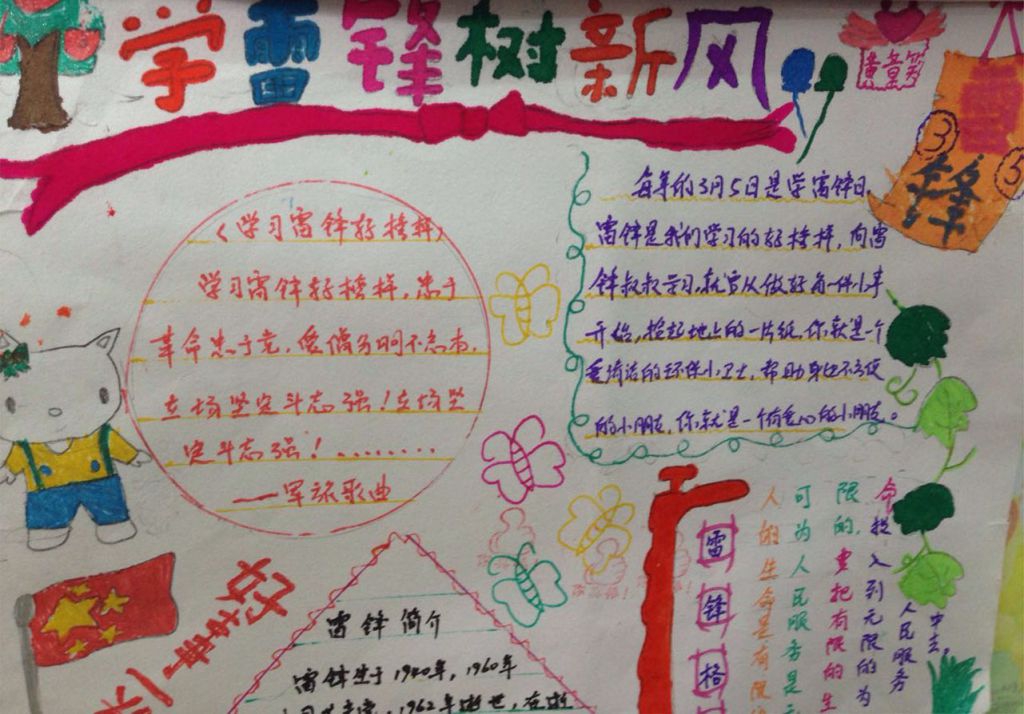 学雷锋树新风
黄章
雷
锋
3
5
《学习雷锋好榜样》
学习雷锋好榜样，忠于
革命忠于党，爱憎分明不忘本，
立场坚定斗志强！立场坚
定斗志强！........
——军旅歌曲
每年的3月5日是学雷锋日，
雷锋是我们学习的好榜样，向雷
锋叔叔学习，就要从做好每一件小事
开始，捡起地上的一片纸，你就是一个
爱清洁的环保小卫士，帮助身边不方便
的小朋友，你就是一个有爱心的小朋友。
好事
雷锋简介
雷锋生于1940年，1960年
1962年逝世，在逝
雷锋格
人的生命是有限
可为人民服务是无
限的，要把有限的生
命投入到无限的为
人民服务
中去。